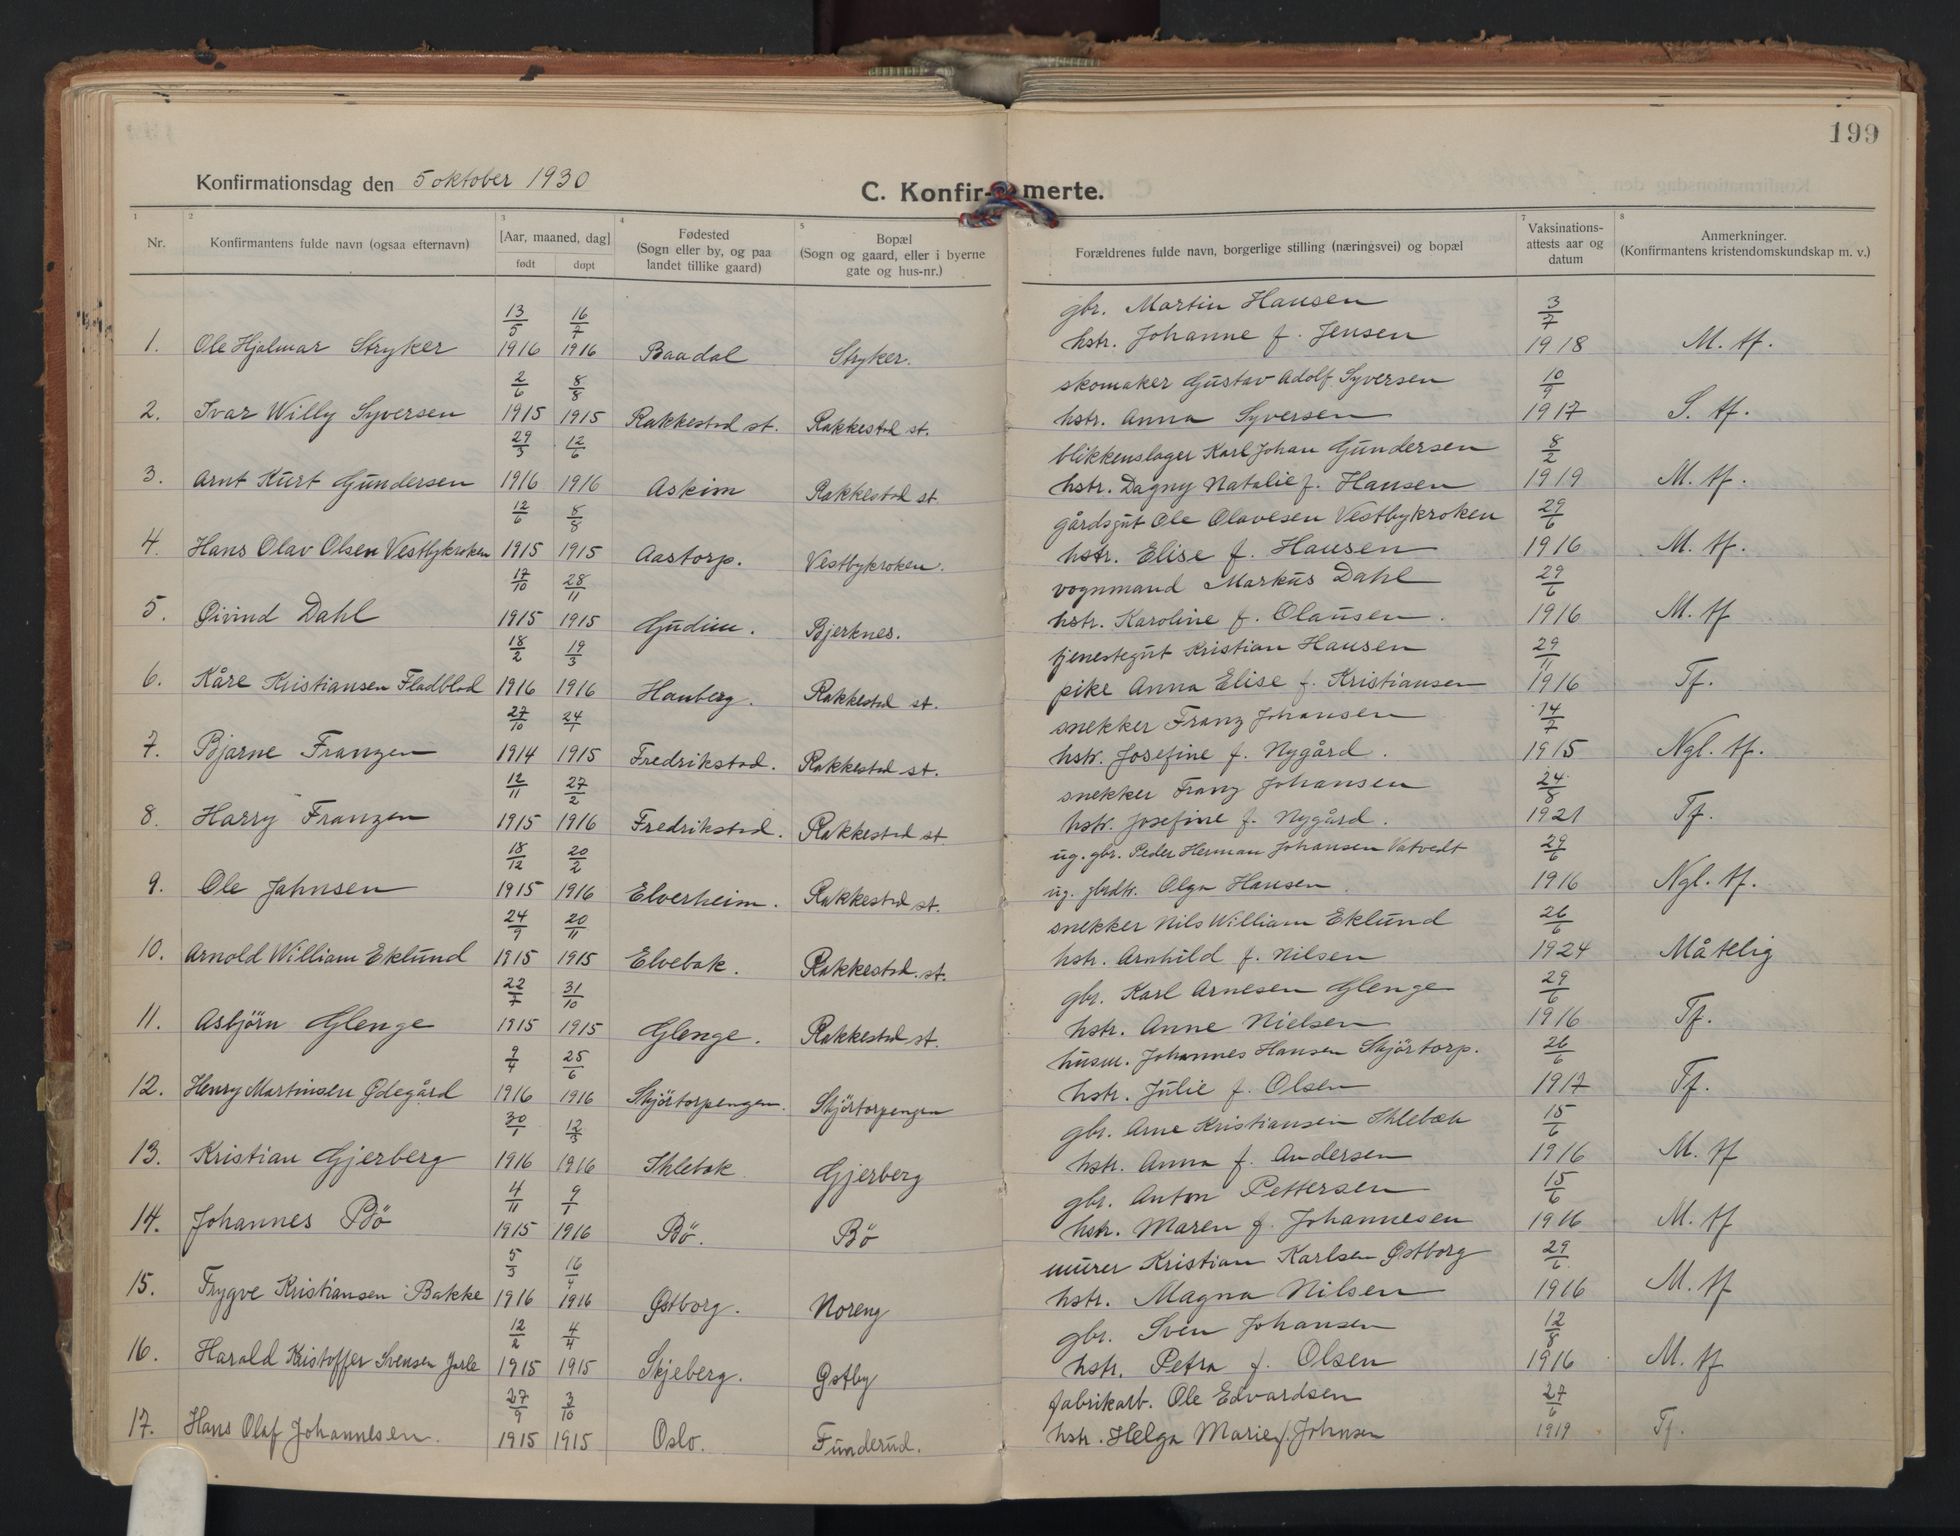 199
Konfirmationsdag den 5 oktober 1930
C. Konfir- merte.
1 2 3 4 5 6 7 8
Nr.
Konfirmantens fulde navn (ogsaa efternavn)
[Aar, maaned, dag]
født døpt
Fødested
(Sogn eller by, og paa
landet tillike gaard)
Bopæl
(Sogn og gaard, eller i byerne
gate og hus-nr.)
Forældrenes fulde navn, borgerlige stilling (næringsvei) og bopæl
Vaksinations-
attests aar og
datum
Anmerkninger.
(Konfirmantens kristendomskundskap m. v.)
13/5 16/7 gbr. Martin Hansen 3/7
1. Ole Hjalmar Stryker 1916 1916 Baadal Stryker. hstr. Johanne f. Jensen 1918 M. tf.
2/6 8/8 skomaker Gustav Adolf Syversen 10/9
2. Ivar Willy Syversen 1915 1915 Rakkestad st. Rakkestad st. hstr. Anna Syversen 1917 S. tf.
29/3 12/6 blikkenslager Karl Johan Gundersen 8/2
3. Arnt Kurt Gundersen 1916 1916 Askim Rakkestad st. hstr. Dagny Natalie f. Hansen 1919 M. tf.
12/6 8/8 gårdsgut Ole Olavesen Vestbykroken 29/6
4. Hans Olav Olsen Vestbykroken 1915 1915 Aastorp. Vestbykroken. hstr. Elise f. Hansen 1916 M. tf.
17/10 28/11 vognmand Markus Dahl 29/6
5. Øivind Dahl 1915 1915 Gudim. Bjerknes. hstr. Karoline f. Olausen. 1916 M. tf
18/2 19/3 tjenestegut Kristian Hansen 29/11
6. Kåre Kristiansen Fladblad 1916 1916 Hauberg. Rakkestad st. pike Anna Elise f. Kristiansen 1916 Tf.
27/10 24/1 snekker Franz Johansen 14/7
7. Bjarne Franzen 1914 1915 Fredrikstad. Rakkestad st. hstr. Josefine f. Nygård. 1915 Ngl. tf.
12/11 27/2 snekker Franz Johansen 24/8
8. Harry Franzen 1915 1916 Fredrikstad. Rakkestad st. hstr. Josefine f. Nygård. 1921 Tf.
18/12 20/2 ug. gbr. Peder Herman Johansen Vatvedt 29/6
9. Ole Jahnsen 1915 1916 Elverheim. Rakkestad st. ug. gbrdtr. Olga Hansen. 1916 Ngl. tf.
24/9 20/11 snekker Nils William Eklund 26/6
10. Arnold William Eklund 1915 1915 Elvebak. Rakkestad st. hstr. Arnhild f. Nilsen 1924 Måtelig
22/7 31/10 gbr. Karl Arnesen Glenge 29/6
11. Asbjörn Glenge 1915 1915 Glenge. Rakkestad st. hstr. Anne Nielsen 1916 Tf.
9/4 25/6 husm. Johannes Hansen Skjörtorp. 26/6
12. Henry Martinsen Ødegård 1916 1916 Skjörtorpengen. Skjörtorpengen hstr. Julie f. Olsen 1917 Tf.
30/1 12/3 gbr. Arne Kristiansen Ihlebæk 15/6
13. Kristian Gjerberg 1916 1916 Ihlebak Gjerberg hstr. Anna f. Andersen 1916 M. tf
4/11 9/1 gbr. Anton Pettersen 15/6
14. Johannes Bö 1915 1916 Bö. Bö hstr. Maren f. Johannesen 1916 M. tf
5/3 16/4 murer Kristian Karlsen Østborg 29/6
15. Trygve Kristiansen Bakke 1916 1916 Østborg. Noreng hstr. Magna Nilsen 1916 M. tf
12/2 4/4 gbr. Sven Johansen 12/8
16. Harald Kristoffer Svensen Jarle 1915 1915 Skjeberg. Østby hstr. Petra f. Olsen 1916 M. tf
27/9 3/10 fabrikarb. Ole Edvardsen 27/6
17. Hans Olaf Johannesen. 1915 1915 Oslo. Funderud. hstr. Helga Marie f. Johnsen 1919 Tf.